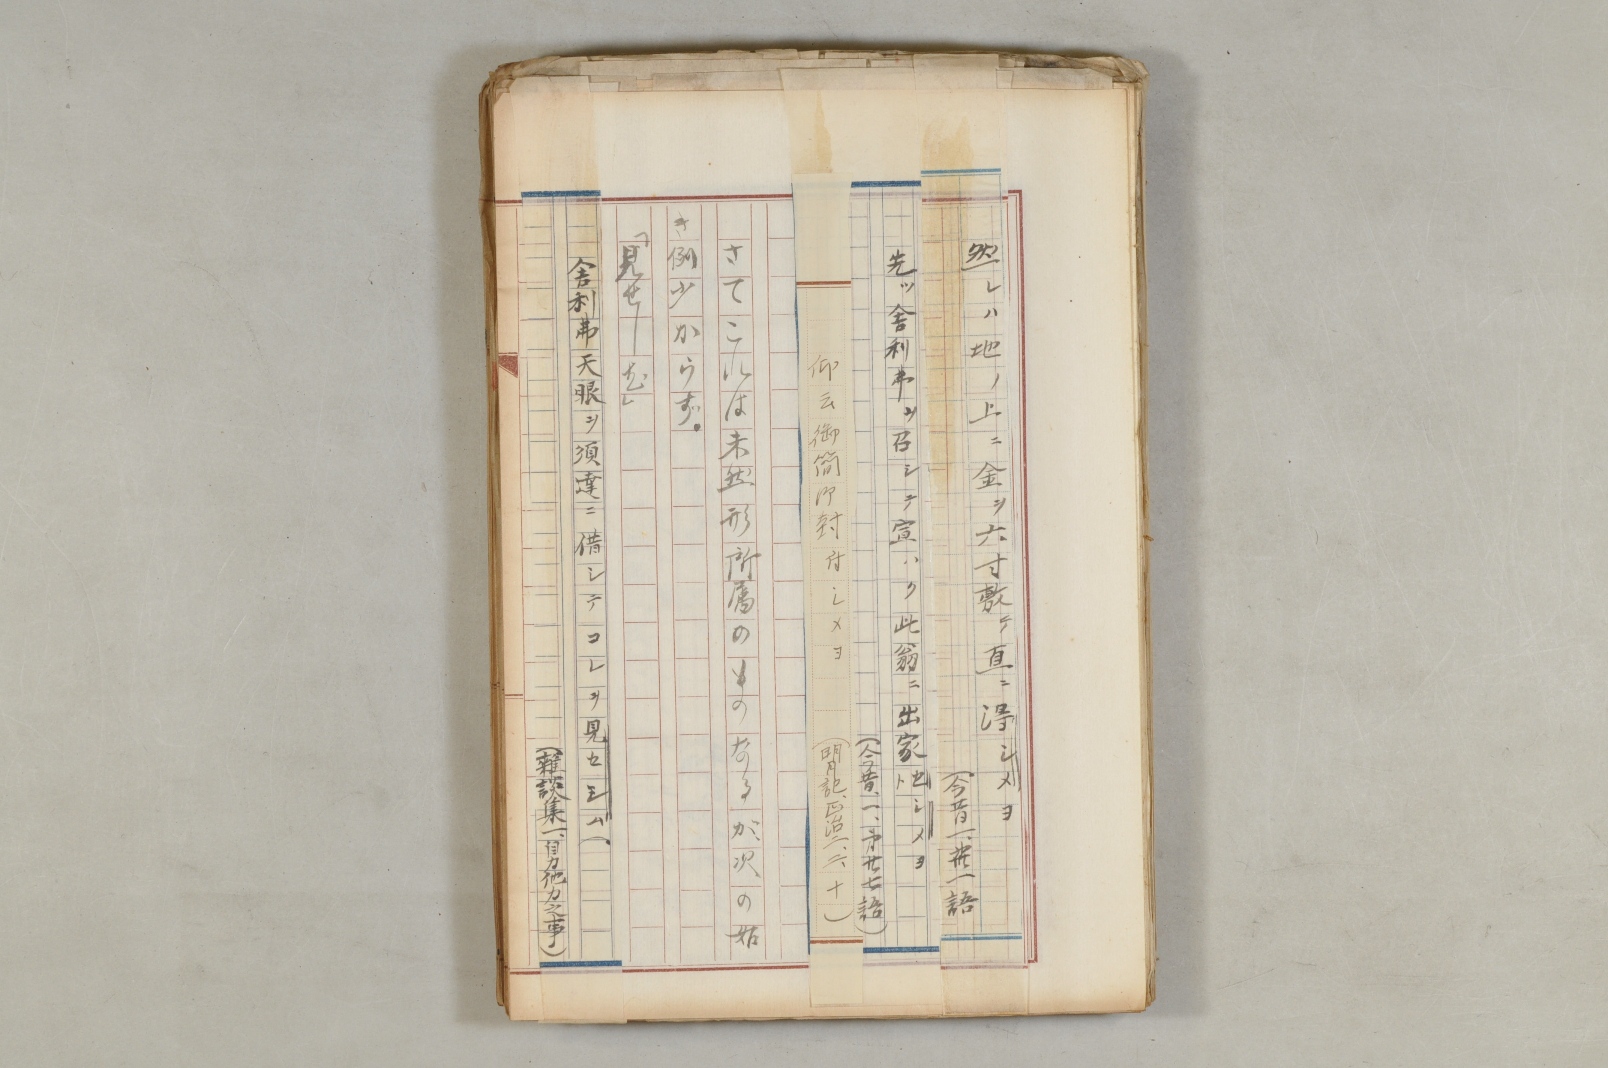 然レハ地ノ上ニ金ヲ六寸敷ケ直ニ得シメヨ
(今昔一、卅一語
先ツ舎利弗ヲ召シテ宣ハク此翁ニ出家セシメヨト
(今昔、一、第廿七語)
仰云御簡即封
(明月記、正治二、六、十)
さてこれは未然形所属のものなるが、次の如
き例少からず。
「見せし
舎利弗天眼ヲ須達ニ借シテコレヲ見セシム(、
(雑談集一、自力他力之事)